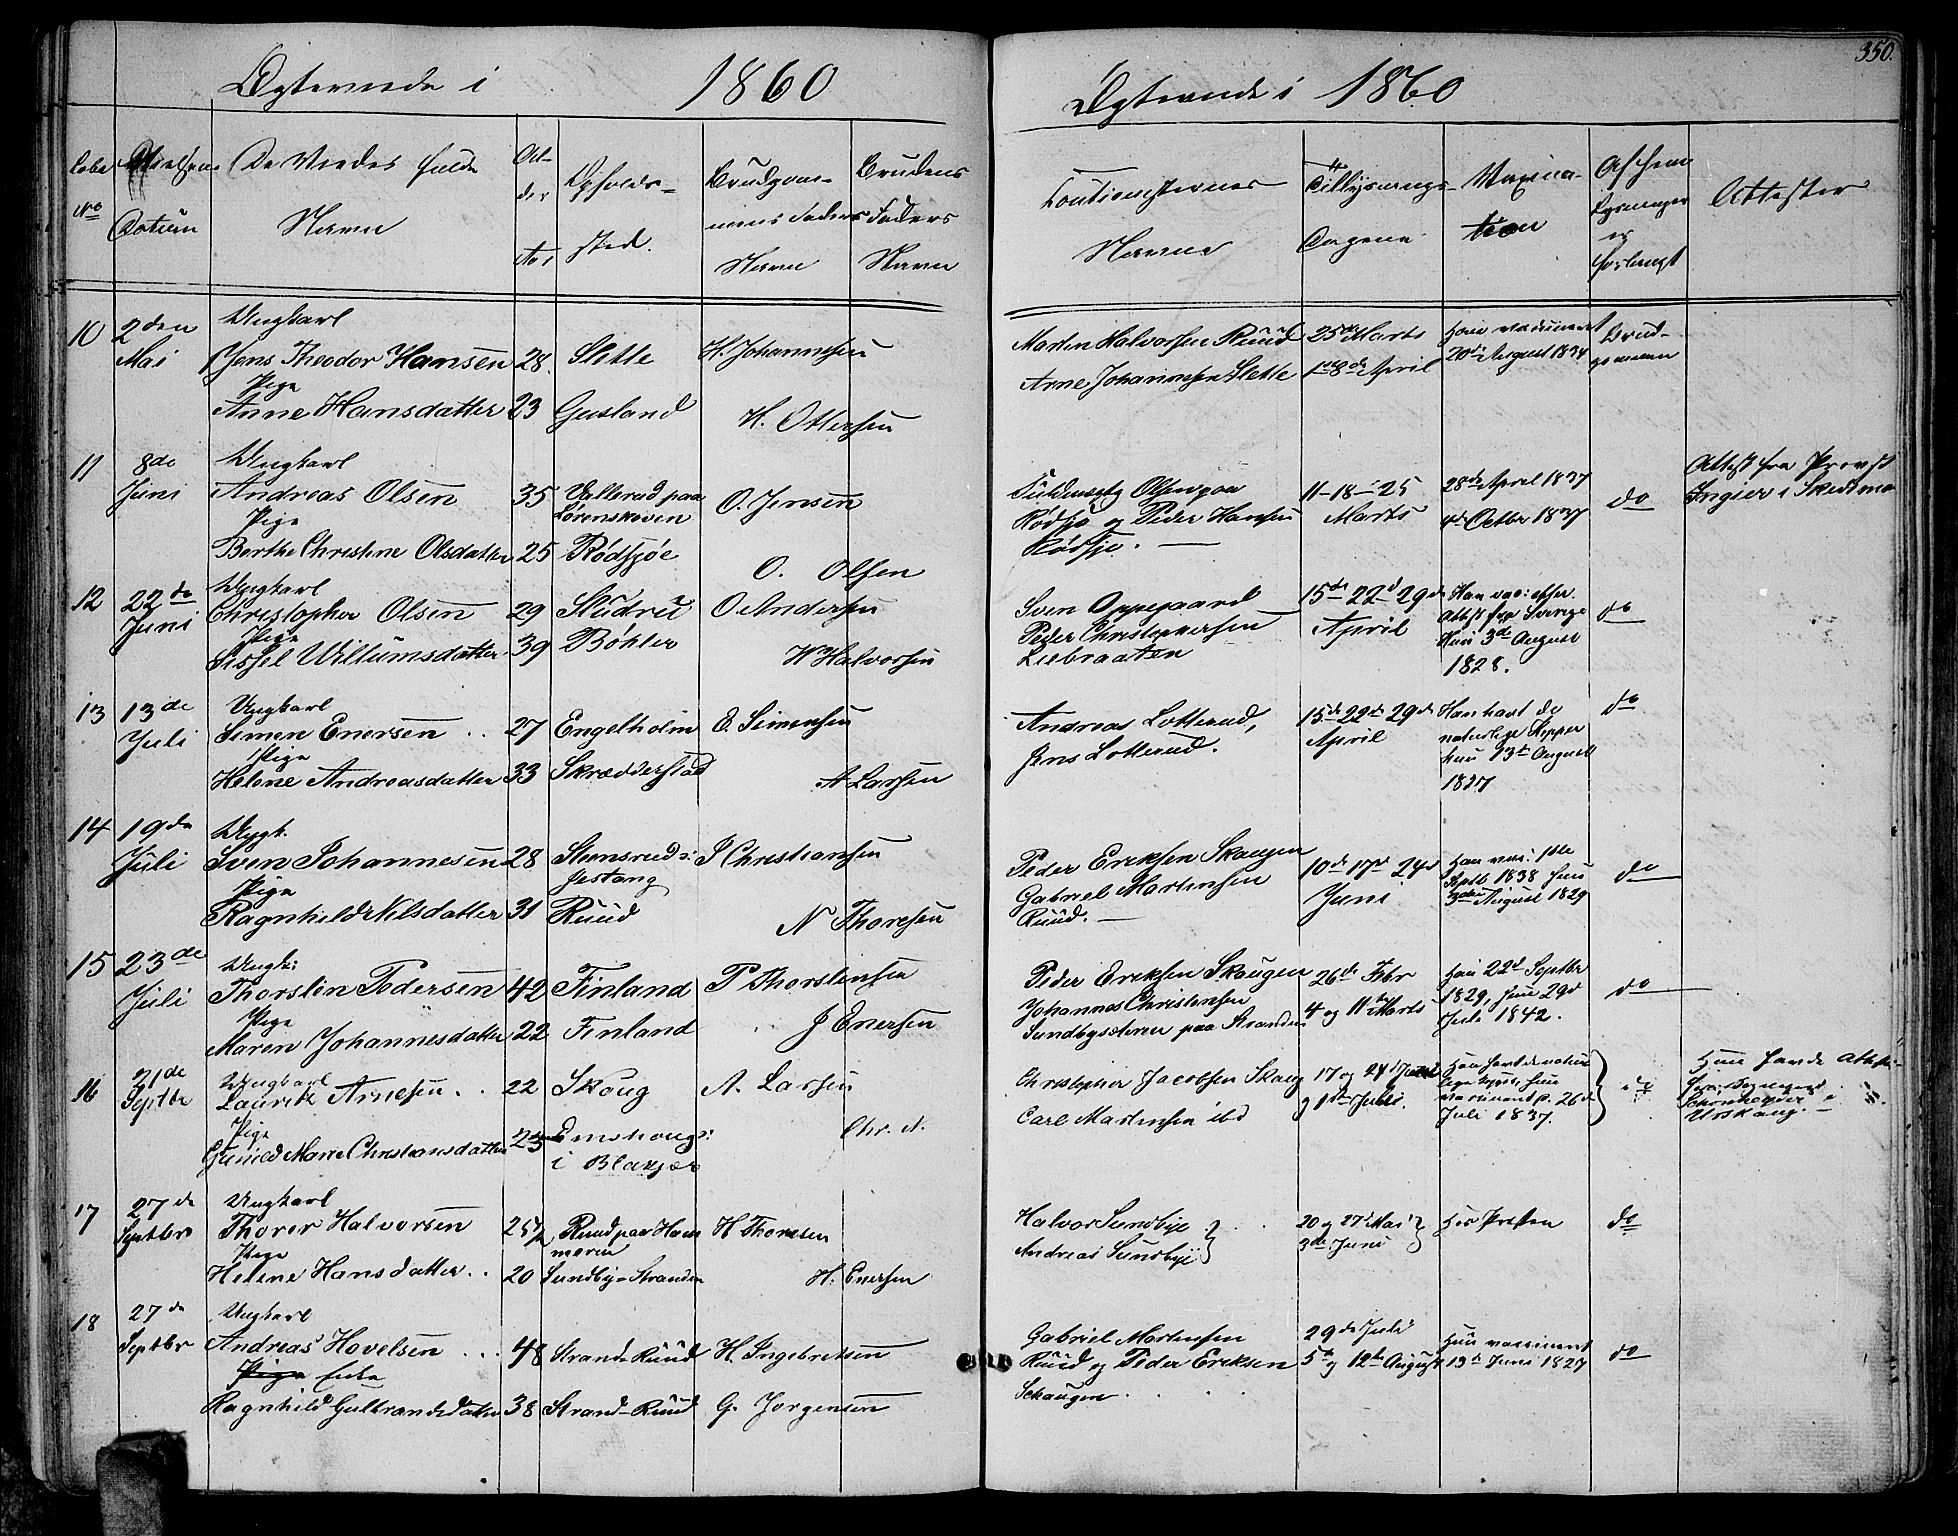 350.
Ægteviede i 1860
Løbe No
Vielsens Datum
De Viedes fulde Navn
Alder Aar
Opholdssted.
Brudgommens Faders Navn
Brudens Faders Navn
10
2den Mai
Ungkarl
Jens Theodor Hansen 28. Slette H. Johannesen
Pige
Anne Hansdatter 23 Gusland H. Ottersen
11
8de Juni
Ungkarl
Andreas Olsen 35 Vallerud paa Lørenskoven O. Jensen
Pige
Berthe Christine Olsdatter 25 Rødsjøe O. Olsen
12
22de Juni
Ungkarl
Christopher Olsen 29 Studru O. Andersen
Pige
Sissel Willumsdatter 39 Bøhler W Halvorsen
13
13de Juli
Ungkarl
Simen Enersen .. 27 Engelholm E. Simensen
Pige
Helene Andreasdatter 33 Skrædderstad A Larsen
14
19de Juli
Ungk.
Sven Johannesen 28 Stensrud: Jestang J Christiansen
Pige
Ragnhild Nilsdatter 31 Ruud N Thoresen
15
23de Juli
Ungk:
Thorsten Pedersen 42 Finland P Thorstensen
Pige
Maren Johannesdatter 22 Finland J Enersen
16
21de Septbr
Ungkarl
Lauritz Arnesen .. 22 Skoug A. Larsen
Pige
Gunild Marie Christiansdatter 23 Emehoug: i Blakjær Chr. A.
17
27de Septbr
Ungkarl
Thorer Halvorsen 25½ Ruud paa Hammeren H Thoresen
Pige
Helene Hansdatter .. 20 Sundby-Stranden H. Enersen
18
27de Septbr
Ungkarl
Andreas Hovelsen ... 48 Strand-Ruud H. Ingebretsen
Pige Enke
Ragnhild Gulbrandsdatter 38 Strand-Ruud G. Jørgensen
Ægteviede i 1860
Cautionisternes Navne
Tillysnings-Dagene
Vaxination
Af hvem Lysninger er forlangt
Attester
Martin Halvorsen Ruud 25de Marts Han vaccineret Brud-
Arne Johannesen Slette 1ste 8de April 20de August 1834 gommen
Guldensby Olsen paa 11-18-25 28de April 1837 do Attest fra Provst
Rødsjø og Peder Hansen Marts 4de Octbr 1837 Ingier i Skedsmo
Rødsjø. —
Sven Oppegaard 15de 22de 29de Han vac: efter do
Peder Christophersen April Attest fra Sverige
Liebraaten Hun 3de August
1828.
Andreas Lotterud, 15de 22de 29de Han havt de do
Jens Lotterud. April naturlige Kopper
hun 13de August
1827
Peder Eriksen Skaugen 10de 17de 24de Han vac: 1ste do
Gabriel Martinsen Juni Septb 1838 Hun
Ruud. — August 1829
Peder Eriksen Skougen 26de Febr Han 22de Septbr do
Johannes Christensen 4 og 11te Marts 1829, Hun 29de
Sundbyeieren paa Stranden Juli 1842.
Christopher Jacobsen Skaug 17 og 24 Juni Han havt de natur do Hun havde Attest
Carl Martinsen ibd og 1ste Juli. lige kopper, hun fra Sognepræst
vaccineret p. 26de Schønheyder i
Juli 1837. Urskoug. —
Halvor Sundbye 20 og 27de Mai Hos Presten do
Andreas Sundbye 3de Juni
Gabriel Martinsen 29de Juli
Ruud og Peder Eriksen 5te og 12te August Hun vaccineret 13de Juni 1827 do
Schaugen . . .